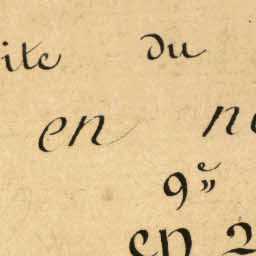 ite du
en n
9e
en 2